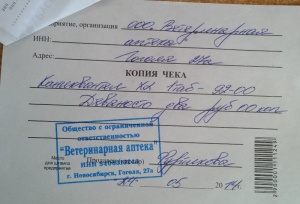 приятие, организация ООО Ветеринарная
ИНН: аптека
Адрес: Гоголя 27а
КОПИЯ ЧЕКА
XL 1 таб - 92-00
Девяносто два руб 00 коп
Общество с ограниченной
ответственностью
"Ветеринарная аптека"
ИНН
г. Новосибирск, Гоголя, 27а
Место
для штампа
предприятия
05 2014г.